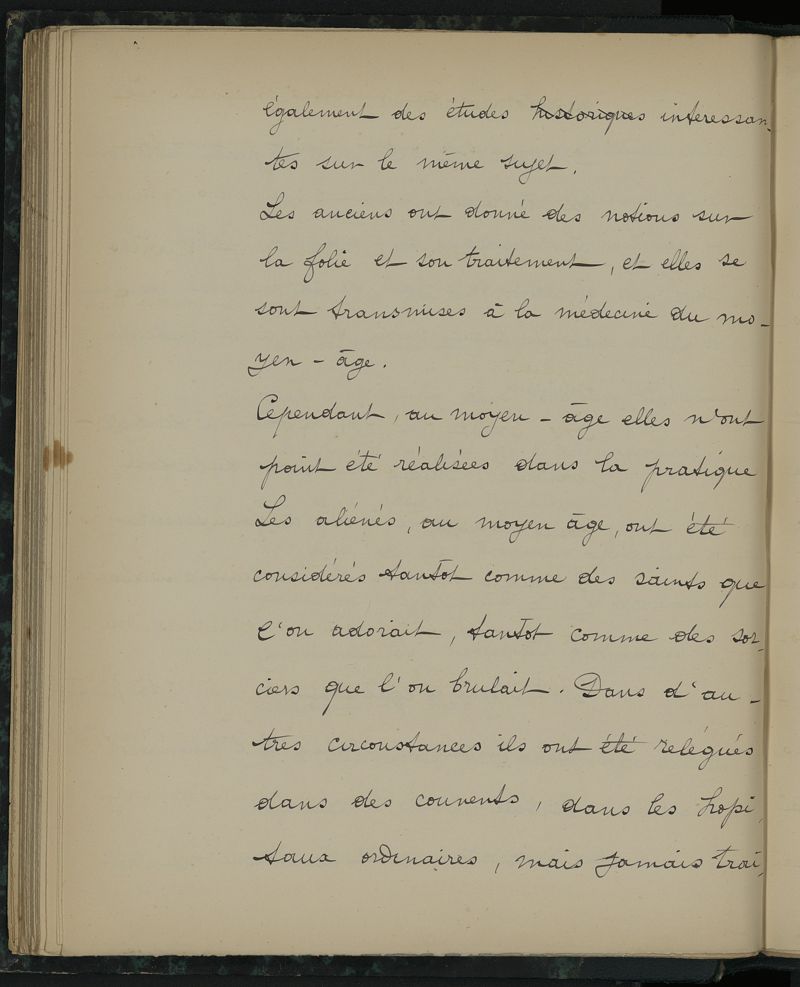 également des études historiques interessan-
tes sur le même sujet.
Les anciens ont donné des notions sur
la folie et son traitement, et elles se
sont transmises à la médecine du mo-
yen-âge.
Cependant, au moyen-âge elles n'ont
point été réalisées dans la pratique
Les aliénés, au moyen âge, ont été
considérés tantôt comme des saints que
l'on adorait, tantôt comme des sor-
ciers que l'on brulait. Dans d'au-
tres circonstances ils ont été relégués
dans des couvents, dans les hopi-
taux ordinaires, mais jamais trai-